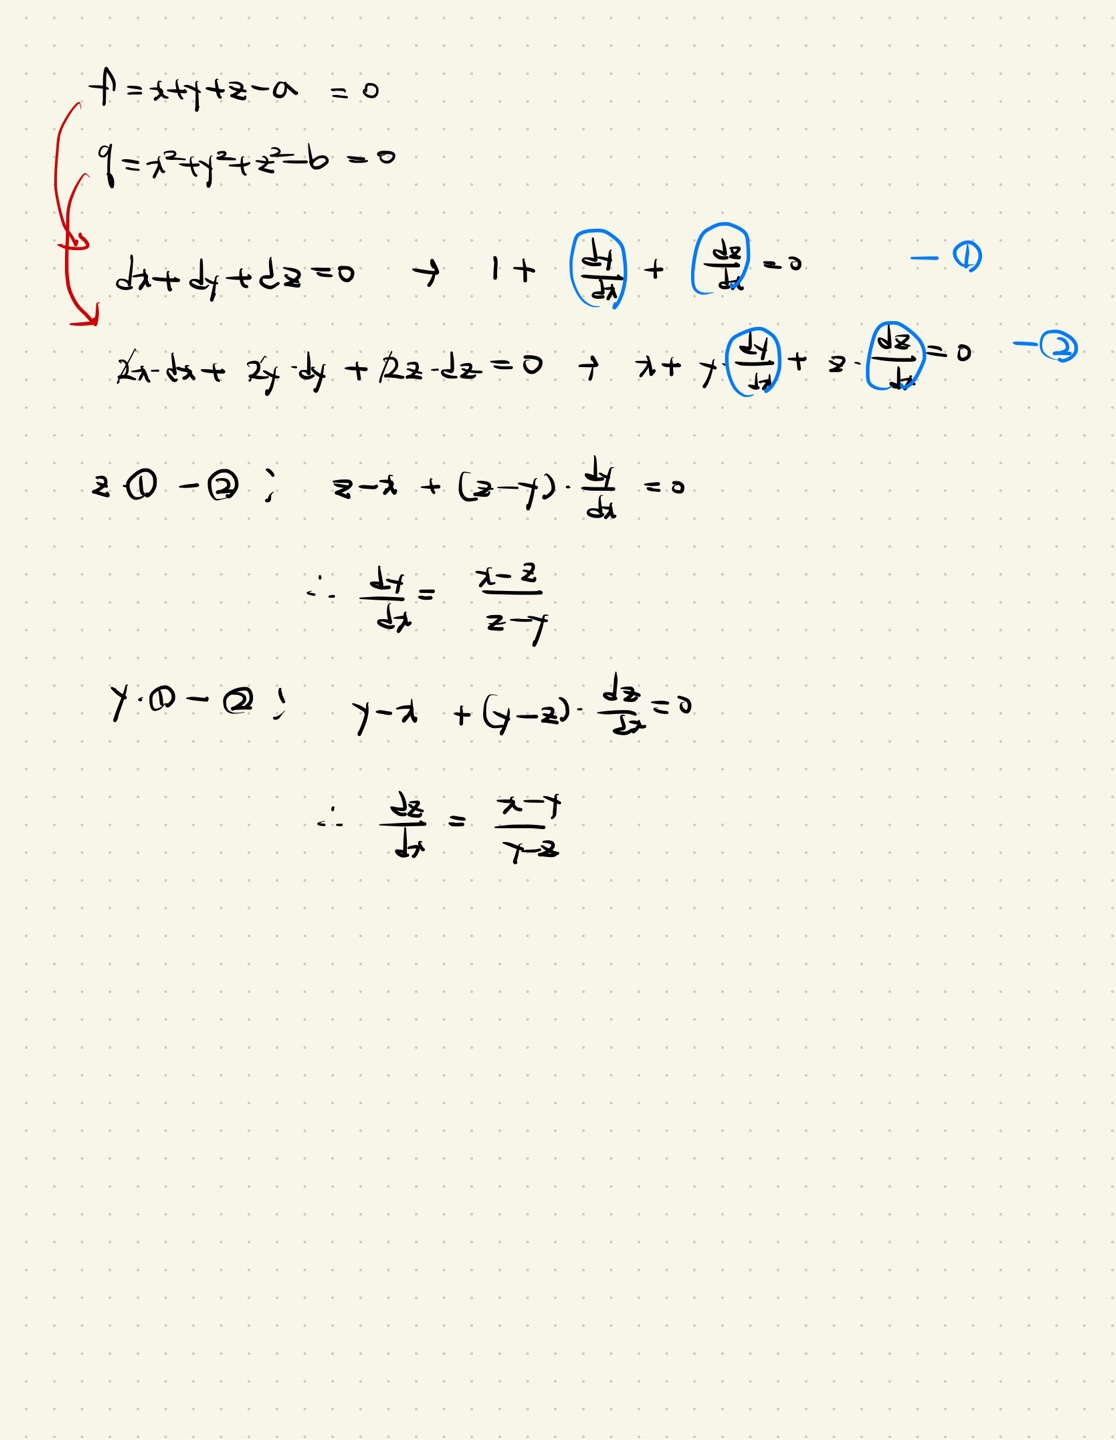 f = x+y+z-a = 0
g = x²+y²+z²-b = 0
dx+dy+dz=0 → 1 + dy/dx + dz/dx = 0 - ①
2x·dx + 2y·dy + 2z·dz = 0 → x + y·dy/dx + z·dz/dx = 0 - ②
z·① - ② ; z-x + (z-y)·dy/dx = 0
∴ dy/dx = x-z/z-y
y·① - ② ; y-x + (y-z)·dz/dx = 0
∴ dz/dx = x-y/y-z